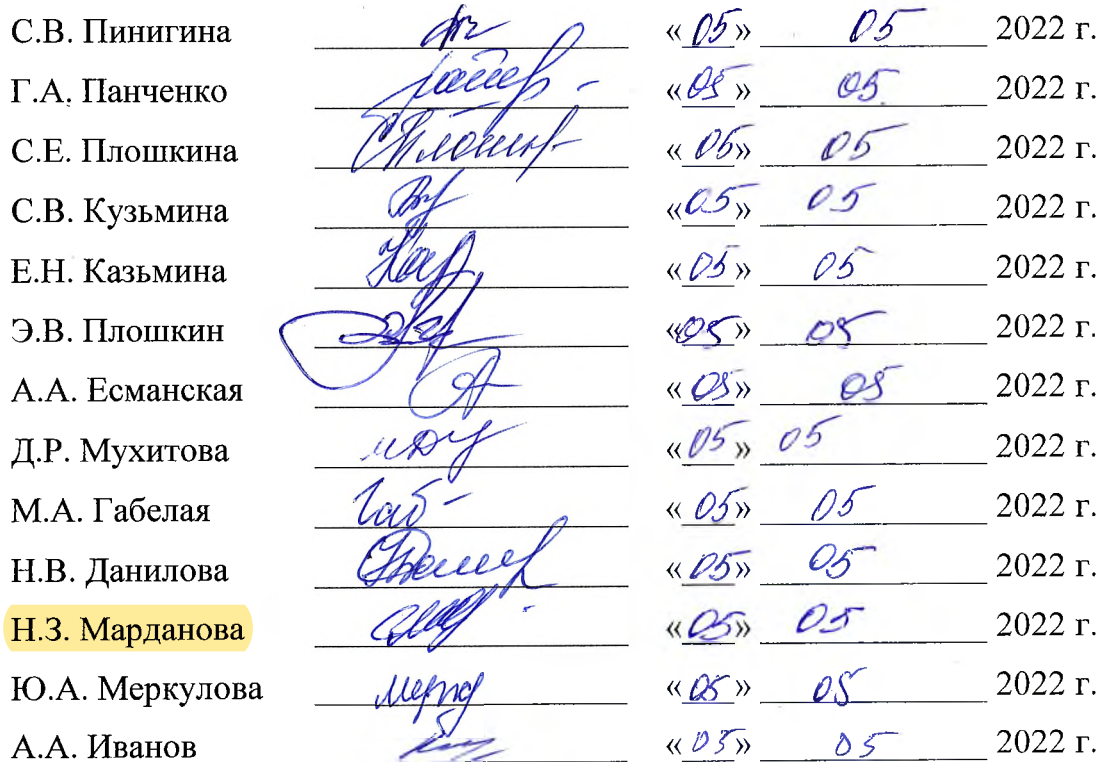 С.В. Пинигина «05» 05 2022 г.
Г.А. Панченко «05» 05 2022 г.
С.Е. Плошкина «05» 05 2022 г.
С.В. Кузьмина «05» 05 2022 г.
Е.Н. Казьмина «05» 05 2022 г.
Э.В. Плошкин «05» 05 2022 г.
А.А. Есманская «05» 05 2022 г.
Д.Р. Мухитова «05» 05 2022 г.
М.А. Габелая Габ- «05» 05 2022 г.
Н.В. Данилова «05» 05 2022 г.
Н.З. Марданова «05» 05 2022 г.
Ю.А. Меркулова «05» 05 2022 г.
А.А. Иванов «05» 05 2022 г.